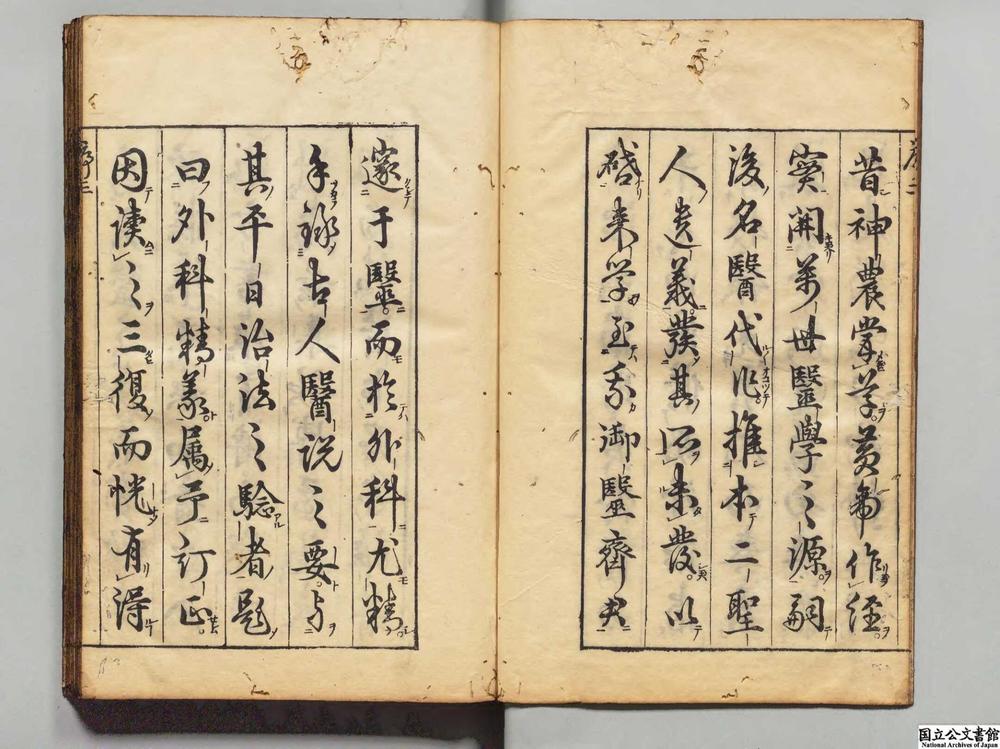 昔神農掌草黄帝作經
實開萬世醫學之源嗣
後名醫代作推本二聖
人遺義發其所未發以
啓来学至我御醫齊君
邃于醫而於外科尤精
手録古人醫説之要与
其平日治法之驗者題
曰外科精義属予訂正
因讀之三復而恍有得
国立公文書館
National Archives of Japan